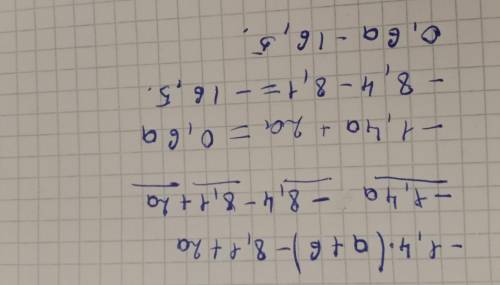 -1,4·(a+6)-8,1+2a
-1,4a -8,4-8,1+2a
-1,4a+2a=0,6a
-8,4-8,1=-16,5.
0,6a-16,5.